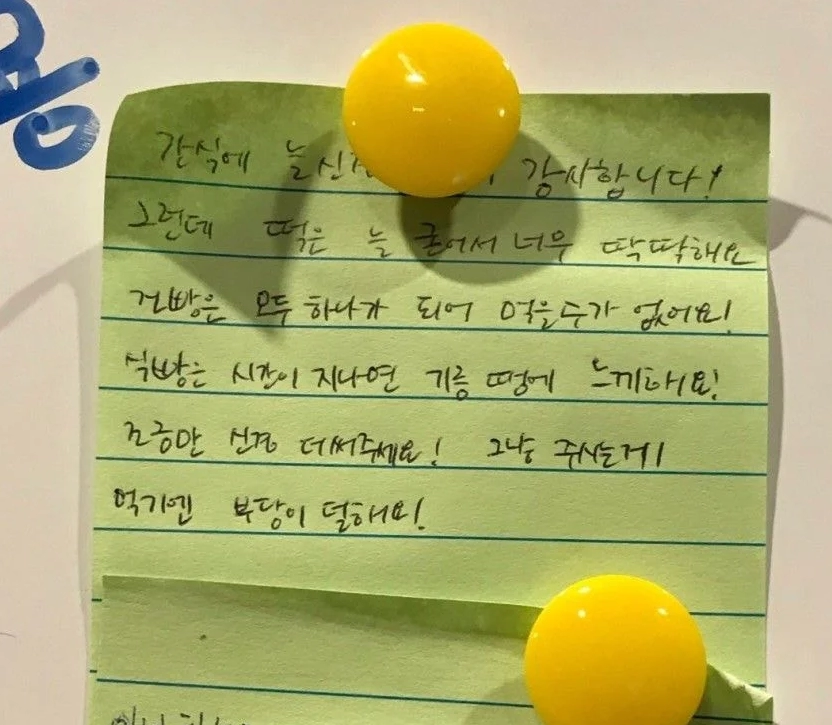 간식에 늘 신 감사합니다!
그런데 떡은 늘 굳어서 너무 딱딱해요
건빵은 모두 하나가 되어 먹을수가 없어요!
식빵은 시간이 지나면 기름 땜에 느끼해요!
조금만 신경 더써주세요! 그냥 주시는게
먹기엔 부담이 덜해요!